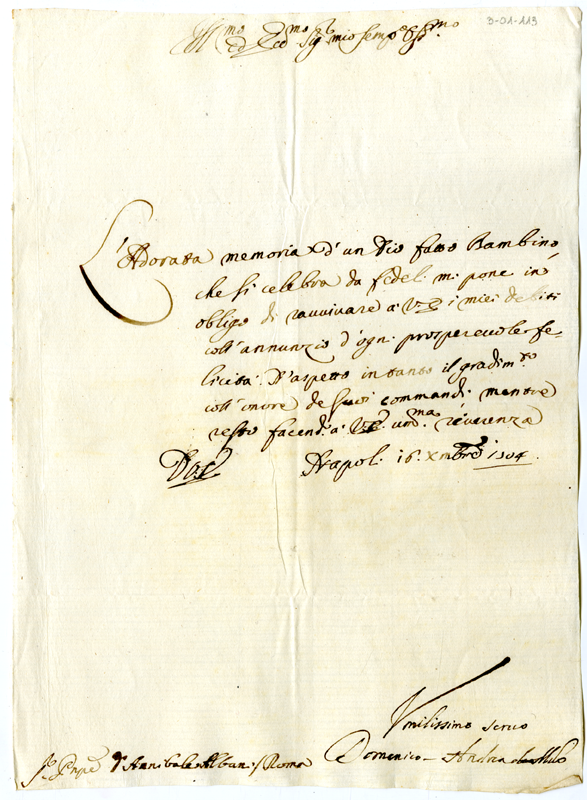 B-01-113
Ill.mo ed Ecc.mo Sig.r mio Semp.e Oss.mo
L'Adorata memoria d'un Dio fatto Bambino
che si celebra da fedeli mi pone in
obligo di ravvivare a V.E. i miei debiti
coll'annunzio d'ogni prosperevole fe-
licità. N'aspetto intanto il gradim.to
coll'onore de suoi commandi mentre
resto facendo a V.E. um.ma reverenza
Napoli 16 Xmbre 1704.
Umilissimo Servo
Domenico Andrea de Milo
D. Annibale Albani / Roma